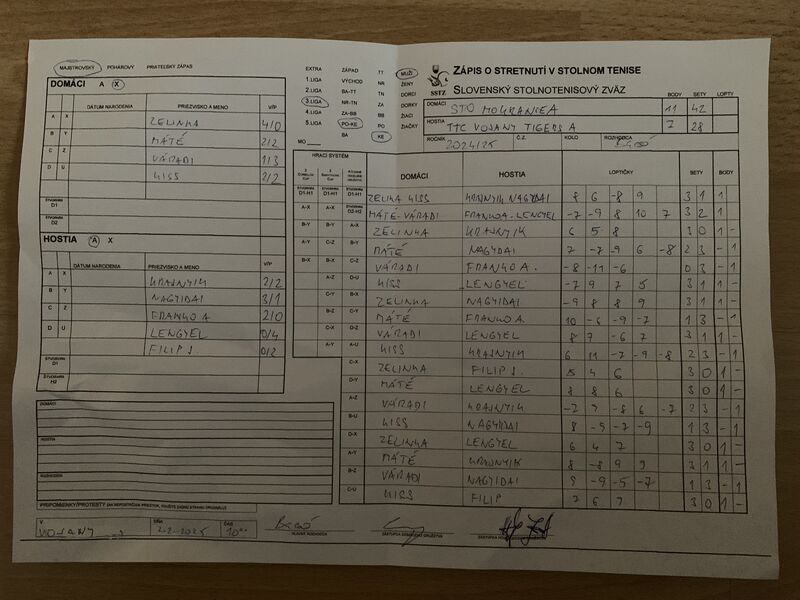 MAJSTROVSKÝ POHÁROVÝ PRIATEĽSKÝ ZÁPAS
DOMÁCI A X
DÁTUM NARODENIA PRIEZVISKO A MENO V/P
A X ZELINKA 4/0
B Y MÁTÉ 2/2
C Z VÁRADI 1/3
D U KISS 2/2
ŠTVORHRA D1
ŠTVORHRA D2
HOSTIA A X
DÁTUM NARODENIA PRIEZVISKO A MENO V/P
A X KRAJNYIK 2/2
B Y NAGYIDAI 3/1
C Z FRANKO A 2/0
D U LENGYEL 0/4
FILIP J. 0/2
ŠTVORHRA D1
ŠTVORHRA H2
DOMÁCI
HOSTIA
ROZHODCOVIA
PRIPOMIENKY/PROTESTY
V VOJANY DŇA 2.2.2025 ČAS 10
HLAVNÝ ROZHODCA
ZÁSTUPCA DOMÁCEHO DRUŽSTVA
EXTRA ZÁPAD TT MUŽI
1.LIGA VÝCHOD NR ŽENY
2.LIGA BA-TT TN DORCI
3.LIGA NR-TN ZA DORKY
4.LIGA ZA-BB BB ŽIACI
5.LIGA PO-KE PO ŽIAČKY
BA KE
MO
ZÁPIS O STRETNUTÍ V STOLNOM TENISE
SSTZ SLOVENSKÝ STOLNOTENISOVÝ ZVÄZ
BODY SETY LOPTY
DOMÁCI STO MOKRANCE A 11 42
HOSTIA TTC VOJANY TIGERS A 7 28
ROČNÍK 2024/25 Č.Z. KOLO ROZHODCA
HRACÍ SYSTÉM
DOMÁCI HOSTIA LOPTIČKY SETY BODY
ZELINKA KISS KRAJNYIK NAGYIDAI 8 6 -8 9 3 1 1
MÁTÉ-VÁRADI FRANKO A.-LENGYEL -7 -9 8 10 7 3 2 1
ZELINKA KRAJNYIK 6 5 8 3 0 1 -
MÁTÉ NAGYIDAI 7 -7 -9 6 -8 2 3 - 1
VÁRADI FRANKO A. -8 -11 -6 0 3 - 1
KISS LENGYEL -7 9 7 5 3 1 1 -
ZELINKA NAGYIDAI -9 8 8 9 3 1 1 -
MÁTÉ FRANKO A. 10 -6 -9 -7 1 3 - 1
VÁRADI LENGYEL 8 7 -6 7 3 1 1 -
KISS KRAJNYIK 6 11 -7 -9 -8 2 3 - 1
ZELINKA FILIP J. 5 4 6 3 0 1 -
MÁTÉ LENGYEL 8 8 6 3 0 1 -
VÁRADI KRAJNYIK -7 9 -8 6 -7 2 3 - 1
KISS NAGYIDAI 8 -9 -7 -9 1 3 - 1
ZELINKA LENGYEL 6 4 7 3 0 1 -
MÁTÉ KRAJNYIK 8 -8 9 9 3 1 1 -
VÁRADI NAGYIDAI 9 -9 -5 -7 1 3 - 1
KISS FILIP 7 6 7 3 0 1 -